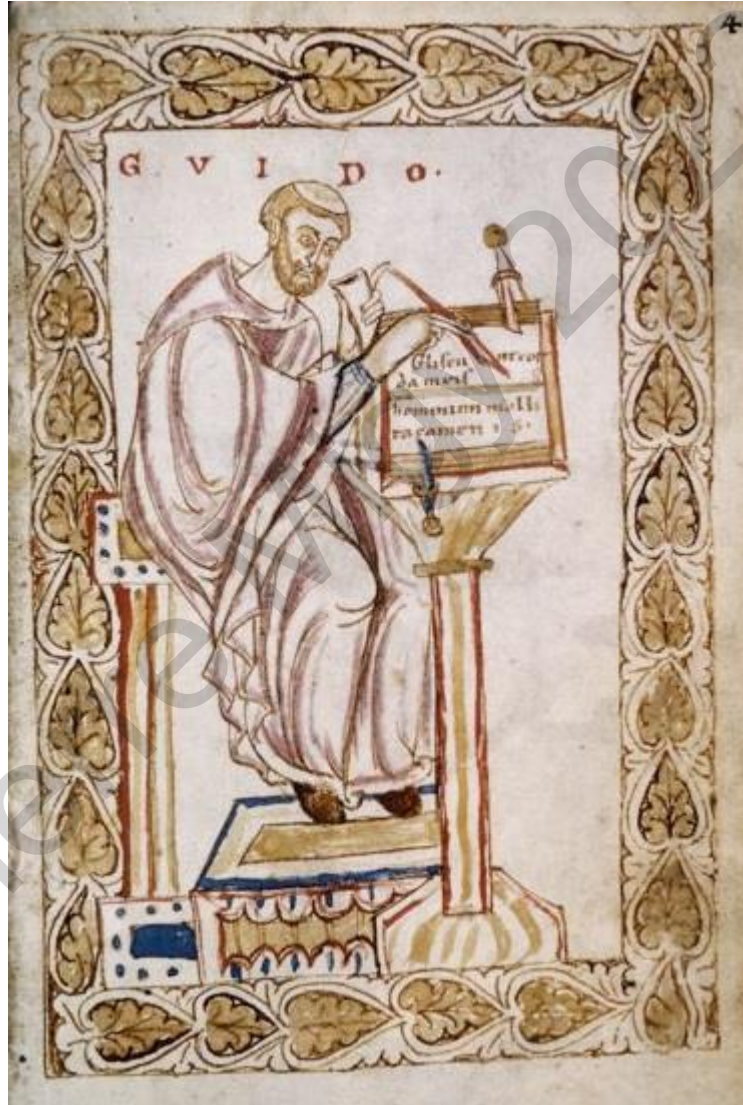 4
GVIDO.
Gliscunt cor
da meis
hominum molli
ta camenis.